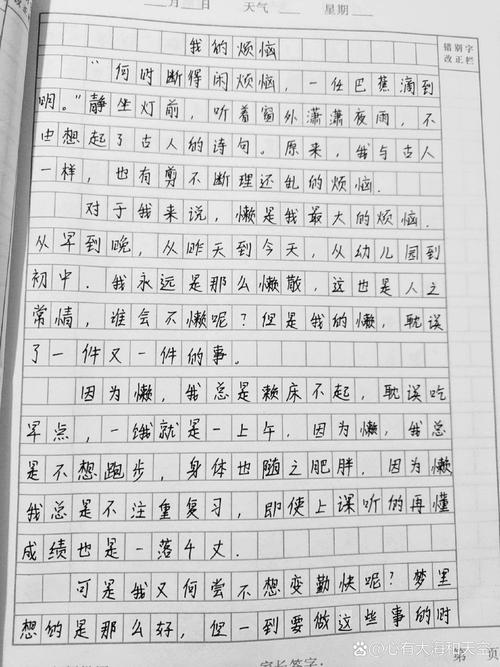 月 日 天气 星期
错别字
改正栏
我的烦恼
“何时断得闲烦恼，一任巴蕉滴到
明。”静坐灯前，听着窗外潇潇夜雨，不
由想起了古人的诗句。原来，我与古人
一样，也有剪不断理还乱的烦恼.
对于我来说，懒是我最大的烦恼.
从早到晚，从昨天到今天，从幼儿园到
初中.我永远是那么懒散，这也是人之
常情，谁会不懒呢？但是我的懒，耽误
了一件又一件的事。
因为懒，我总是赖床不起，耽误吃
早点，一饿就是一上午.因为懒，我总
是不想跑步，身体也随之肥胖.因为懒
我总是不注重复习，即使上课听的再懂
成绩也是一落4丈.
可是我又何尝不想变勤快呢？梦里
想的是那么好，但一到要做这些事的时
家长签字：
第 页
@心有大海和天空